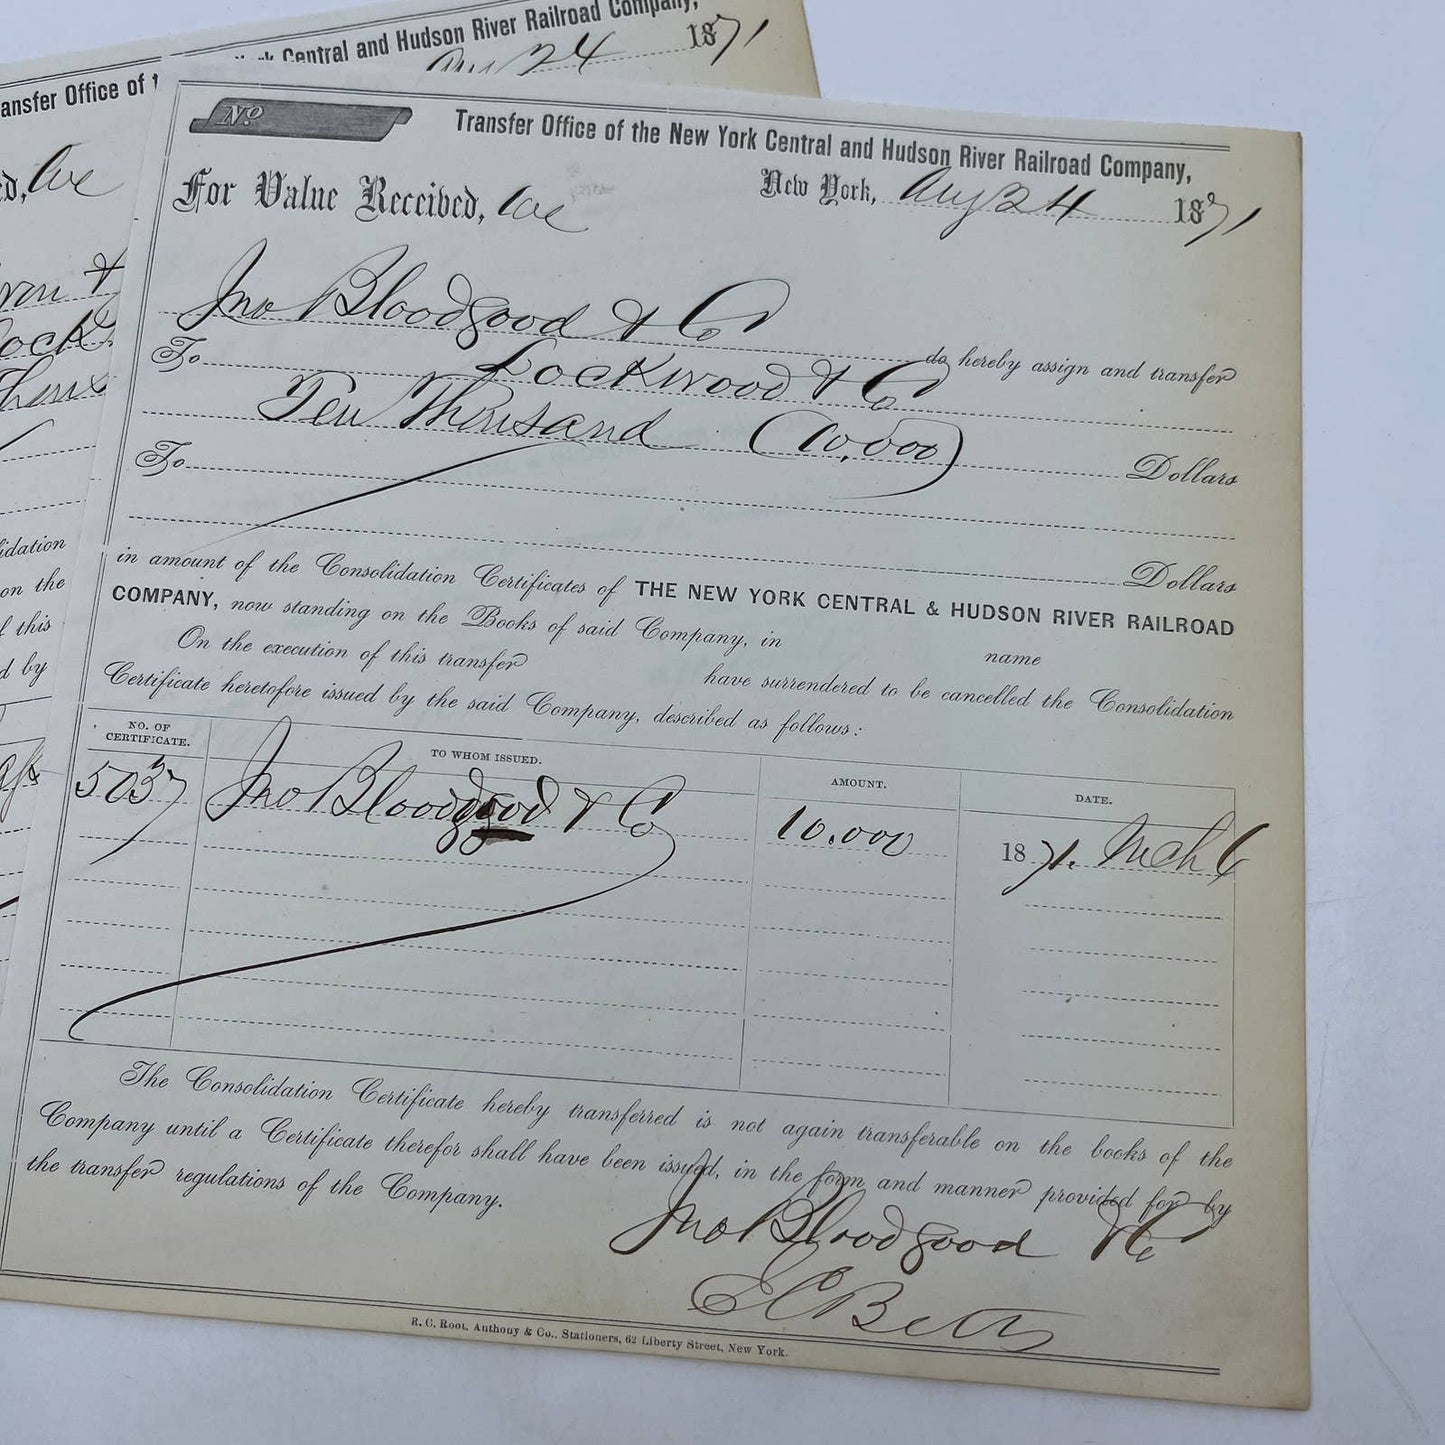 Central and Hudson River Railroad Company,
ansfer Office of
Aug 24 1871
No
Transfer Office of the New York Central and Hudson River Railroad Company,
New York, Aug 24 1871
For Value Received, We
Jno Bloodgood & Co
do hereby assign and transfer
To Lockwood & Co
Ten Thousand (10,000) Dollars
To
Dollars
in amount of the Consolidation Certificates of THE NEW YORK CENTRAL & HUDSON RIVER RAILROAD
COMPANY, now standing on the Books of said Company, in name
On the execution of this transfer have surrendered to be cancelled the Consolidation
Certificate heretofore issued by the said Company, described as follows:
NO. OF CERTIFICATE. TO WHOM ISSUED. AMOUNT. DATE.
5037 Jno Bloodgood & Co 10.000 1871. Mch 6
The Consolidation Certificate hereby transferred is not again transferable on the books of the
Company until a Certificate therefor shall have been issued, in the form and manner provided for by
the transfer regulations of the Company.
Jno Bloodgood & Co
E C Betts
R. C. Root, Anthony & Co., Stationers, 62 Liberty Street, New York.
ed, We
idation
on the
f this
d by